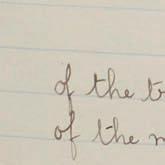 of the tr
of the